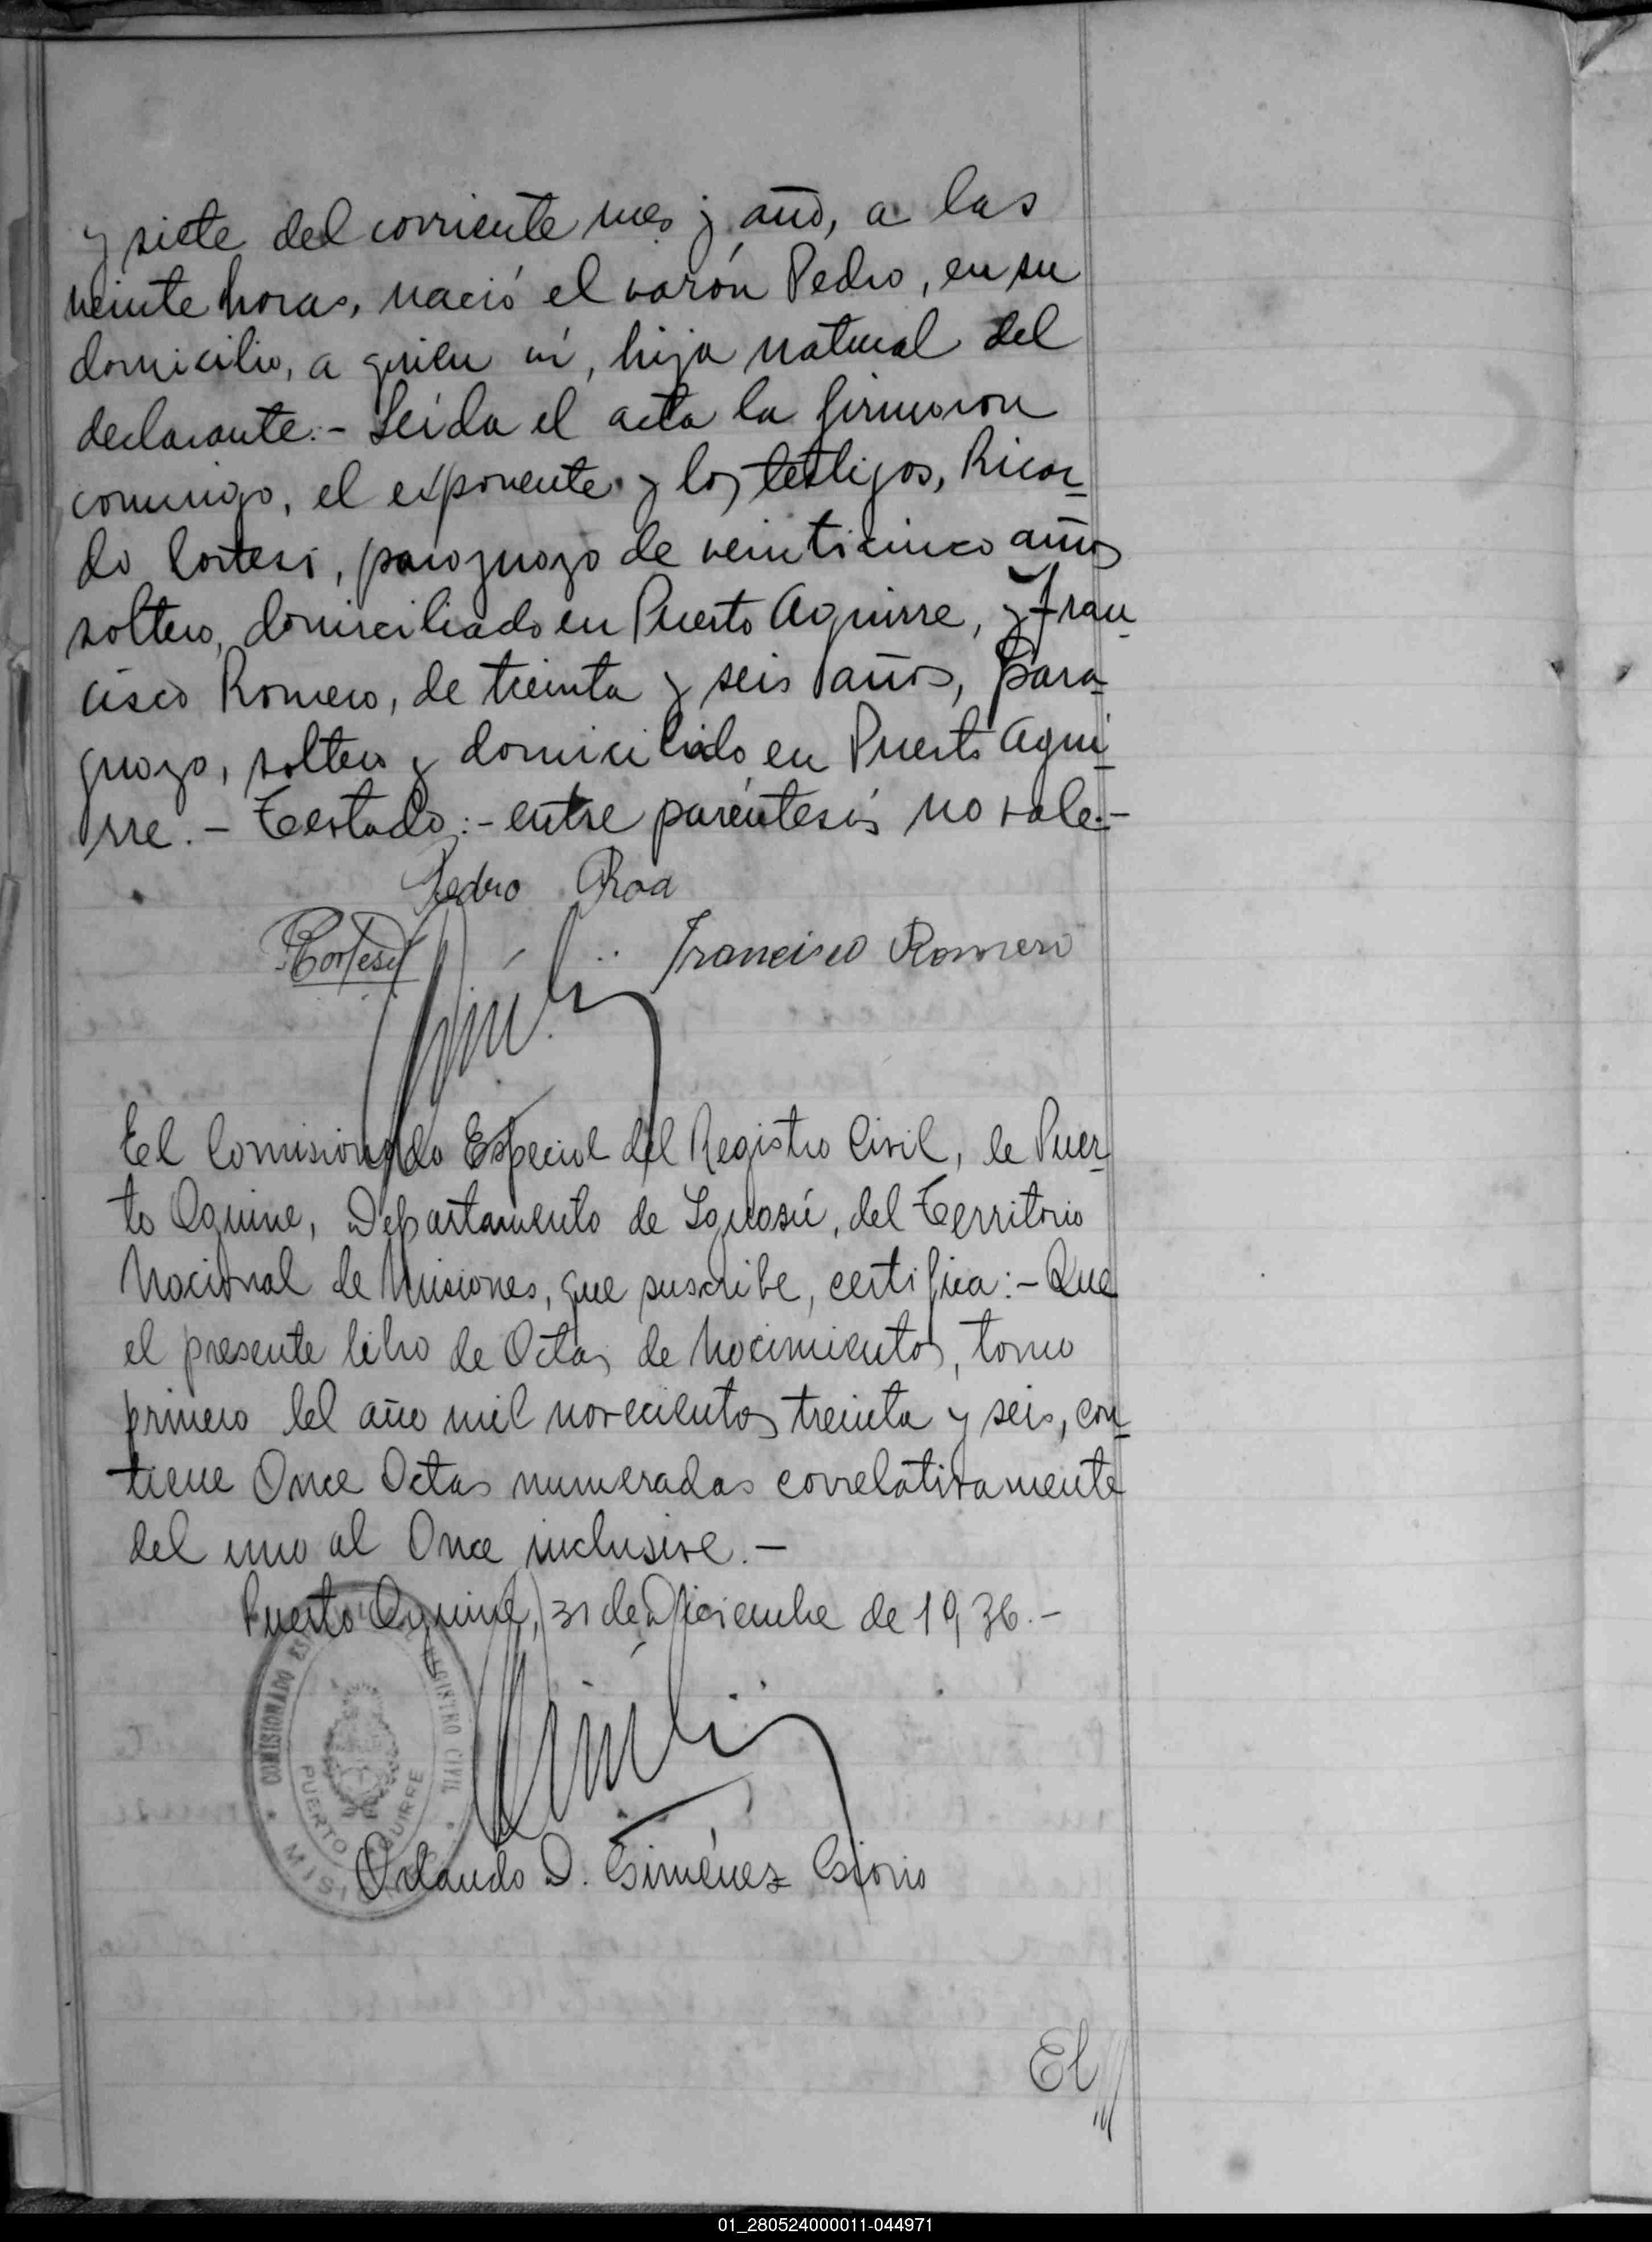 y siete del corriente mes y año, a las
veinte horas, nació el varón Pedro, en su
domicilio, a quien vi, hijo natural del
declarante.- Leída el acta la firmaron
conmigo, el exponente y los testigos, Ricar-
do Cortesi, paraguayo de veinticinco años
soltero, domiciliado en Puerto Aguirre, y Fran-
cisco Romero, de treinta y seis años, para-
guayo, soltero y domiciliado en Puerto Agui-
rre.- Testado:- entre paréntesis no vale.-
Pedro Roa
RCortesi
Francisco Romero
El Comisionado Especial del Registro Civil, de Puer-
to Aguirre, Departamento de Iguasú, del Territorio
Nacional de Misiones, que suscribe, certifica:- Que
el presente libro de Actas de Nacimientos, tomo
primero del año mil novecientos treinta y seis, con-
tiene Once Actas numeradas correlativamente
del uno al Once inclusive.-
Puerto Aguirre, 31 de Diciembre de 1936.-
COMISIONADO ESP REGISTRO CIVIL
PUERTO AGUIRRE
MISIONES
Orlando D. Giménez Osorio
El
01_280524000011-044971